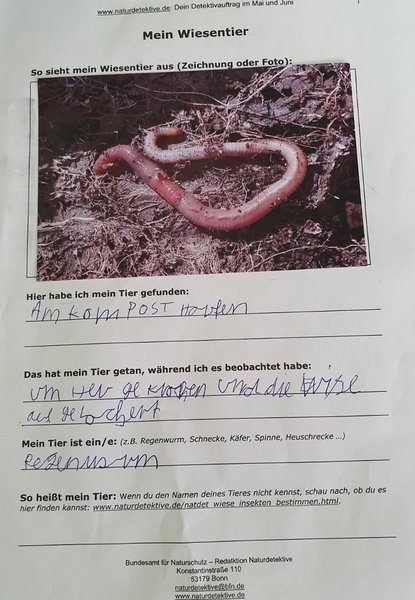 www.naturdetektive.de: Dein Detektivauftrag im Mai und Juni
Mein Wiesentier
So sieht mein Wiesentier aus (Zeichnung oder Foto):
Hier habe ich mein Tier gefunden:
Am komPOST Haufen
Das hat mein Tier getan, während ich es beobachtet habe:
um Her ge krochen und die Wise
auf gelochert
Mein Tier ist ein/e: (z.B. Regenwurm, Schnecke, Käfer, Spinne, Heuschrecke ...)
So heißt mein Tier: Wenn du den Namen deines Tieres nicht kennst, schau nach, ob du es
hier finden kannst: www.naturdetektive.de/natdet_wiese_insekten_bestimmen.html.
Bundesamt für Naturschutz – Redaktion Naturdetektive
Konstantinstraße 110
53179 Bonn
naturdetektive@bfn.de
www.naturdetektive.de